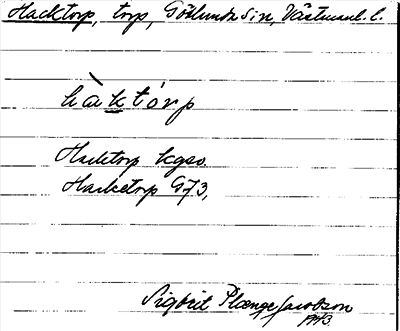 Hacktorp, torp, Götlunda sn, Västmanl. l.
hàktórp
Hacktorp kgeo.
Hacketorp G73,
Sigbrit Plænge Jacobson
1943.